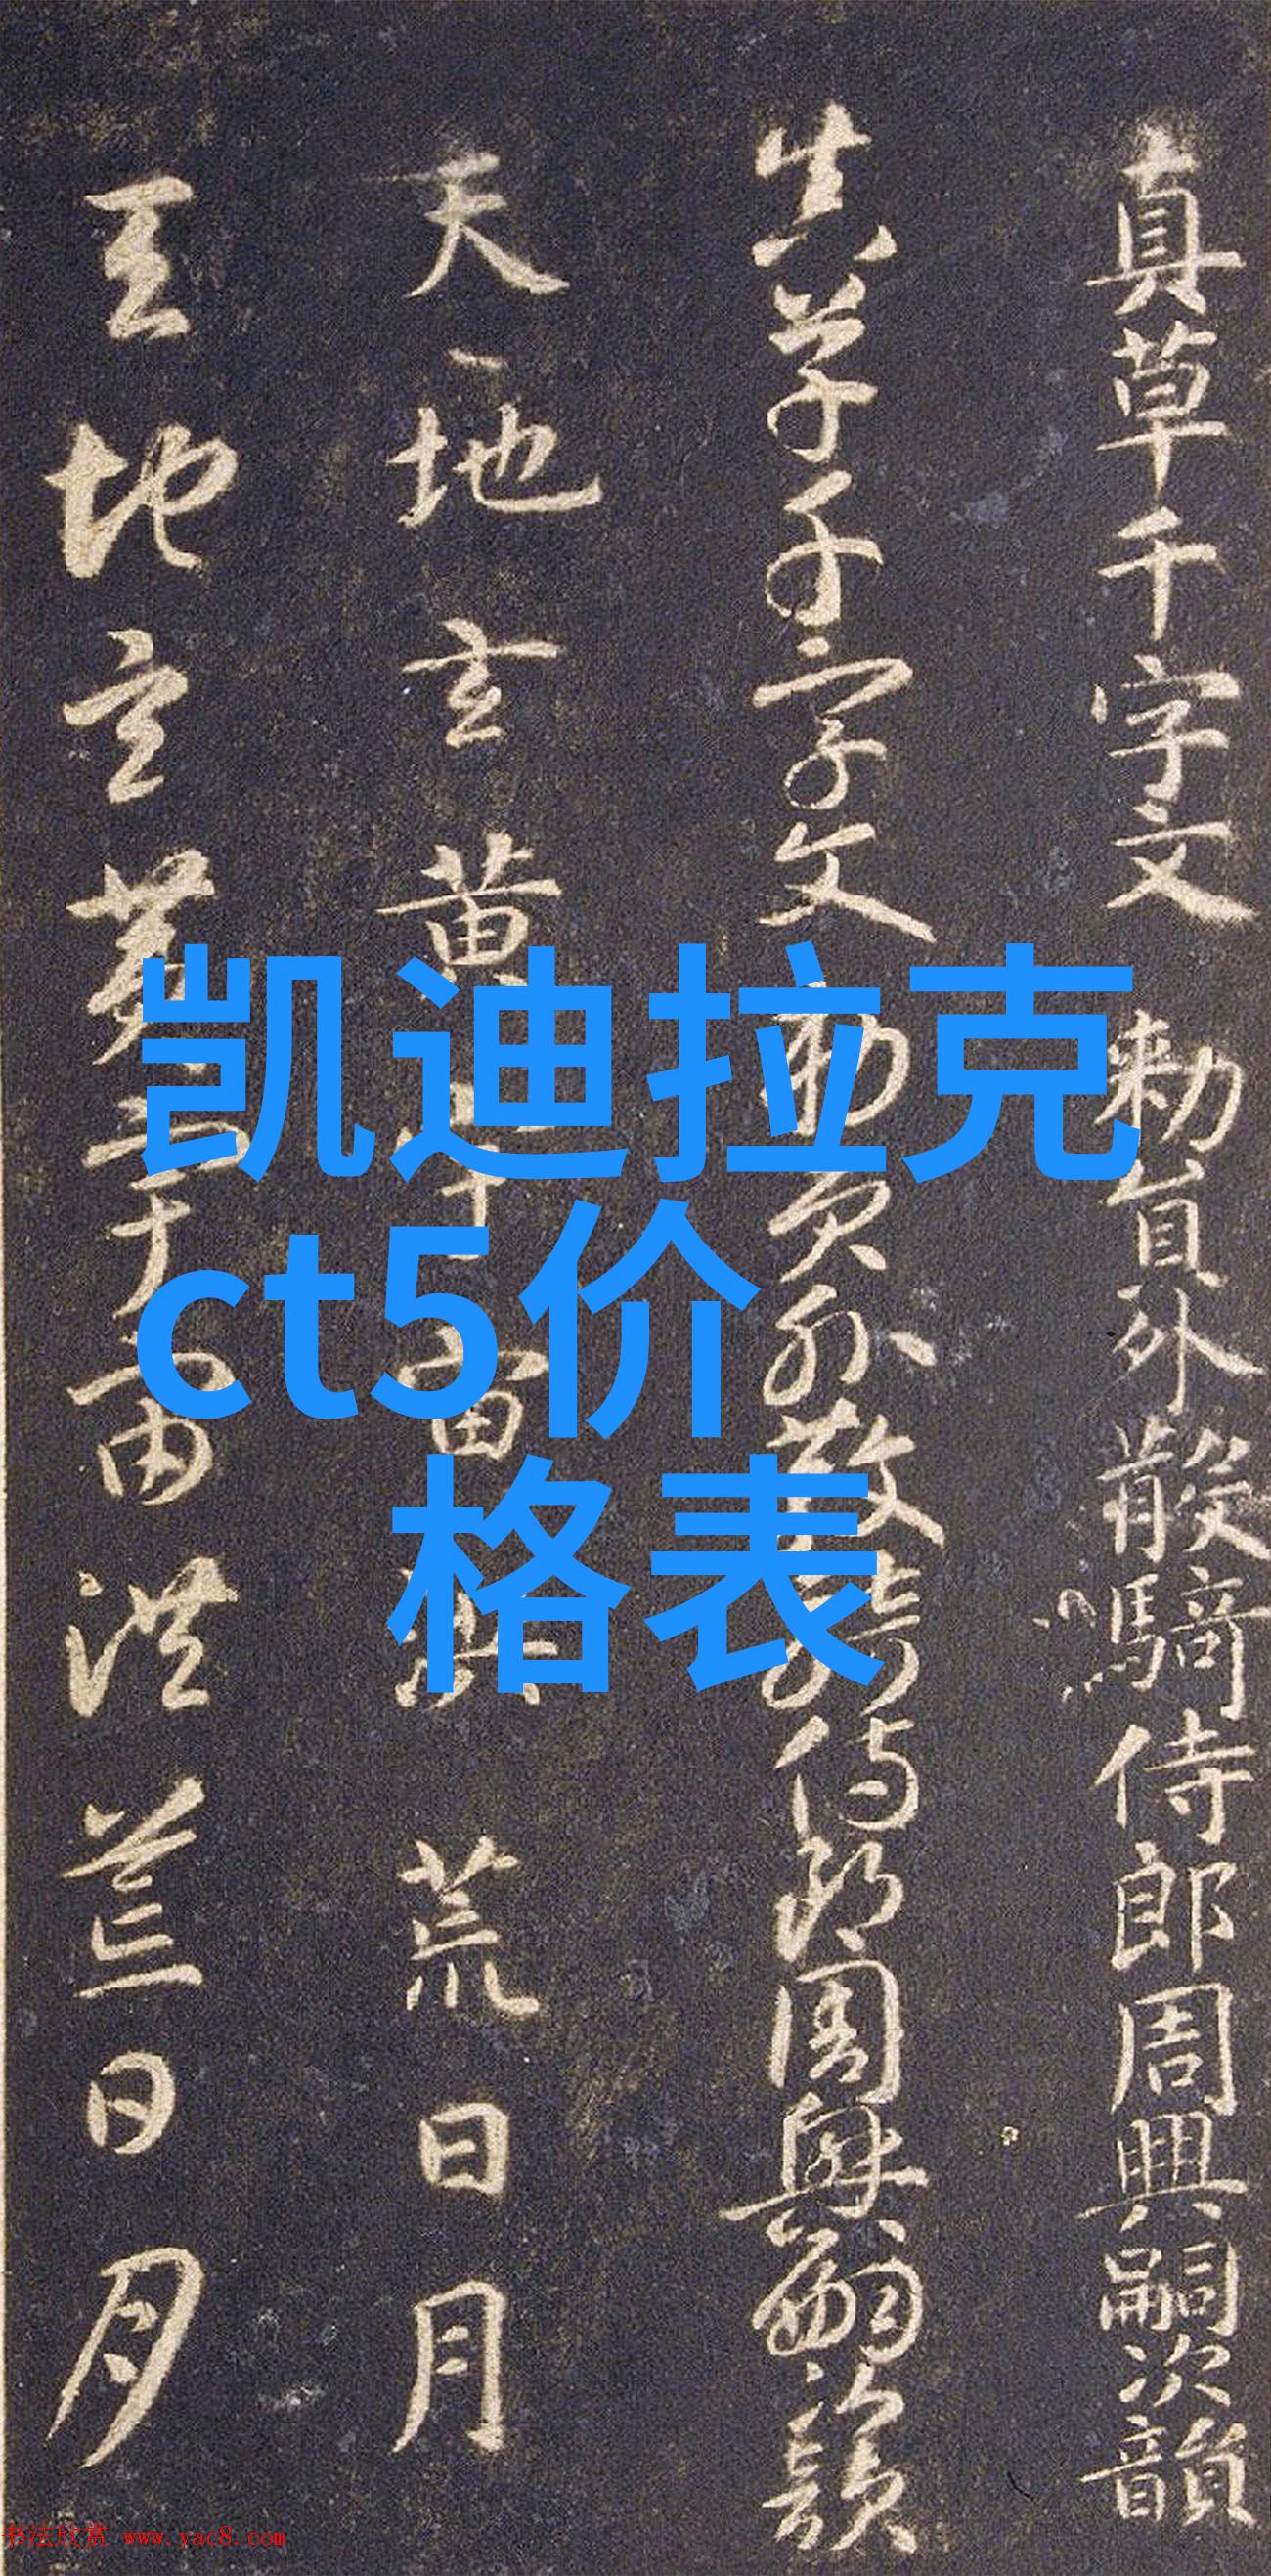 真草千字文 勅員外散騎侍郎周興嗣次韻
真草千字文 勅員外散騎侍郎周興嗣次韻
天地玄黃宇宙洪荒日月
天地玄黃宇宙洪荒日月
凯迪拉克
ct5价
格表
书法欣赏 www.yac8.com